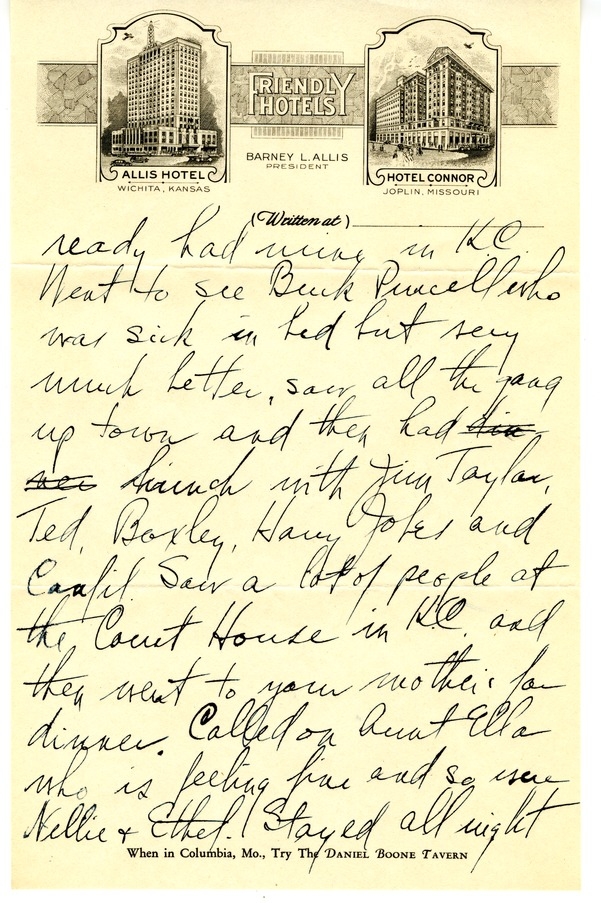 FRIENDLY
HOTELS
ALLIS HOTEL
WICHITA, KANSAS
BARNEY L. ALLIS
PRESIDENT
HOTEL CONNOR
JOPLIN, MISSOURI
(Written at)
ready had mine in K.C.
Went to see Buck Purcell who
was sick in bed but very
much better, saw all the gang
up town and then had din
ner lunch with Jim Taylor,
Ted, Boxley, Harry Jobes and
Canfil. Saw a lot of people at
the Court House in K.C. and
then went to your mother's for
dinner. Called on Aunt Ella
who is feeling fine and so were
Nellie & Ethel. Stayed all night
When in Columbia, Mo., Try The DANIEL BOONE TAVERN